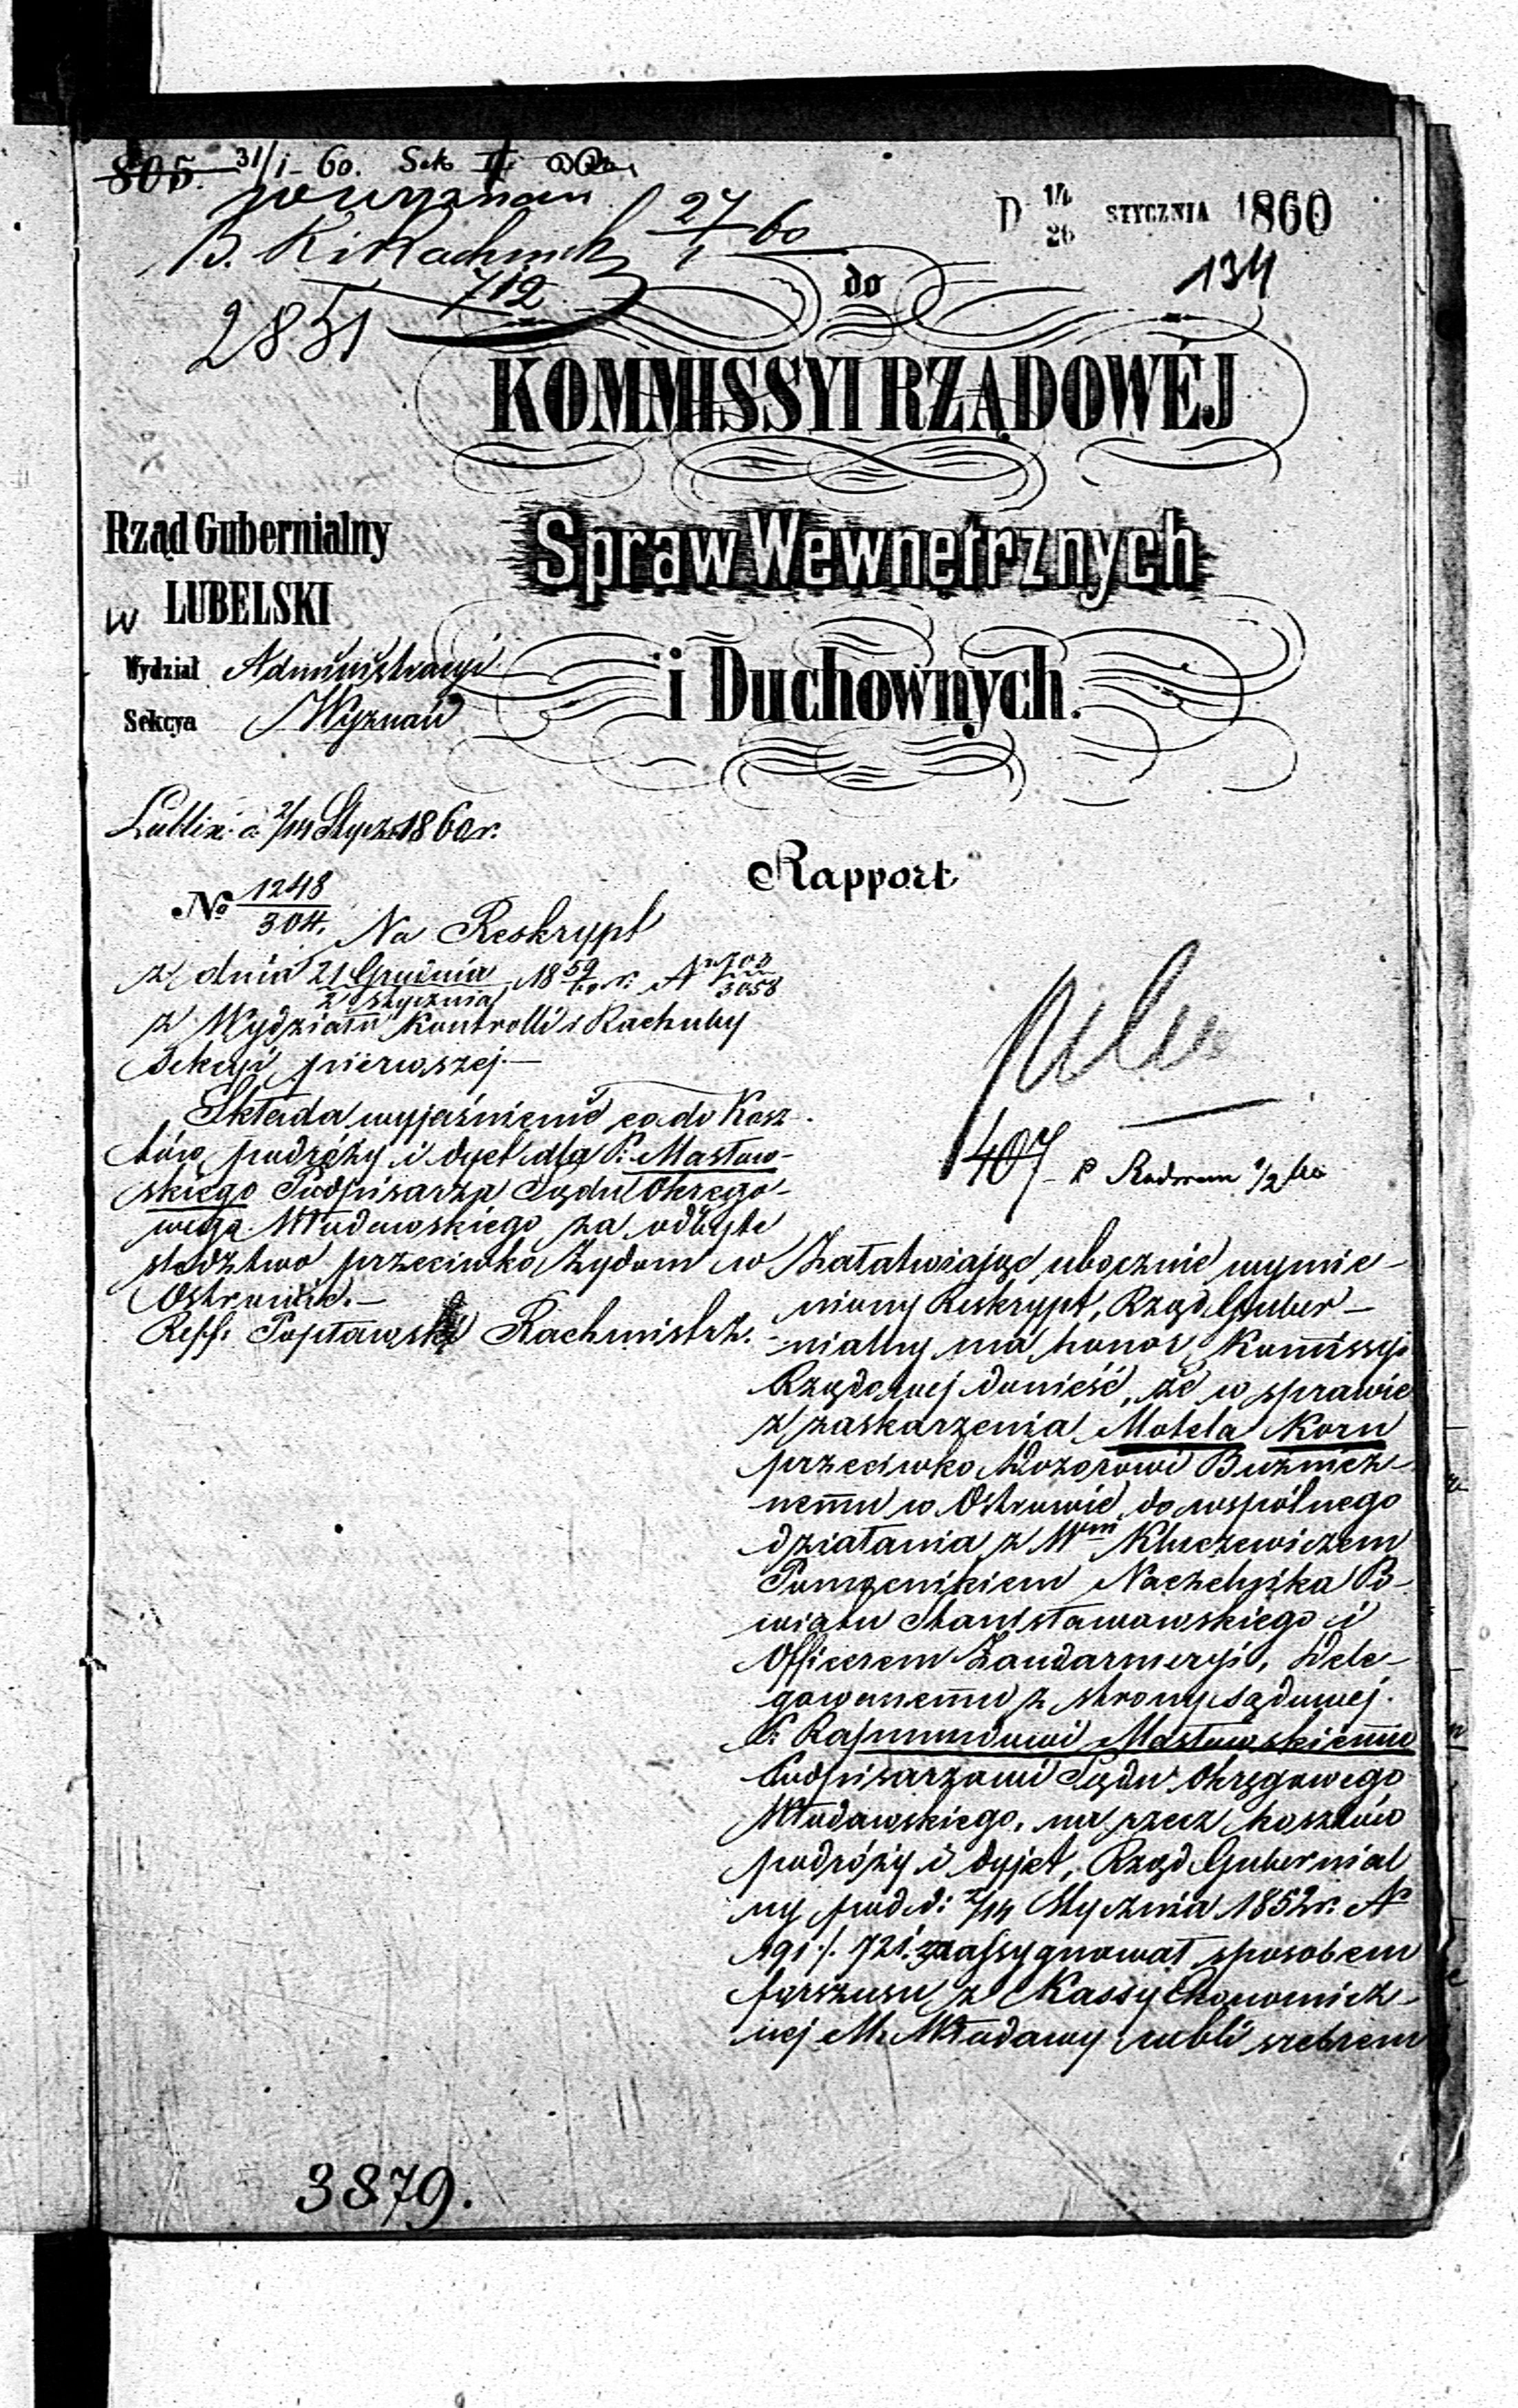 805. 31/1 - 60.
D 14/26 STYCZNIA 1860
27/1 60
712
134
2851
do
KOMMISSYI RZĄDOWÉJ
Spraw Wewnętrznych
i Duchownych.
Rząd Gubernialny
w LUBELSKI
Wydział Administracyi
Sekcya Wyznań
Lublin d. 2/14 Stycz. 1860 r.
Rapport
No 1248/304.
Na Reskrypt
z dnia 21 Grudnia/2 Stycznia 1859/60 r. No 700/3058
z Wydziału Kontrolli i Rachuby
Sekcyi pierwszej.—
Składa wyjaśnienie co do Kosz-
tów podróży i dyet dla P. Masłow-
skiego Podpisarza Sądu Okręgo-
wego Włodawskiego za odbyte
śledztwo przeciwko Żydom w
Ostrowie.—
Reff. Popławski Rachmistrz.
407
Załatwiając ubocznie wymie-
niony Reskrypt, Rząd Guber-
nialny ma honor Kommissyi
Rządowej donieść, że w sprawie
z zaskarżenia Motela Korn
przeciwko Dozorowi Bóźnicz-
nemu w Ostrowie, do wspólnego
działania z Wm Kluczewiczem
Pomocnikiem Naczelnika Po-
wiatu Stanisławowskiego i
Officerem Żandarmeryi, Dele-
gowanemu z strony sądowej.
P. Rajmundowi Masłowskiemu
Podpisarzowi Sądu Okręgowego
Włodawskiego, na rzecz kosztów
podróży i dyjet, Rząd Gubernial
ny pod d. 2/14 Stycznia 1852 r. No
191/. 721. zaassygnował sposobem
forszusu z Kassy Ekonomicz-
nej M. Włodawy rubli srebrem
3879.